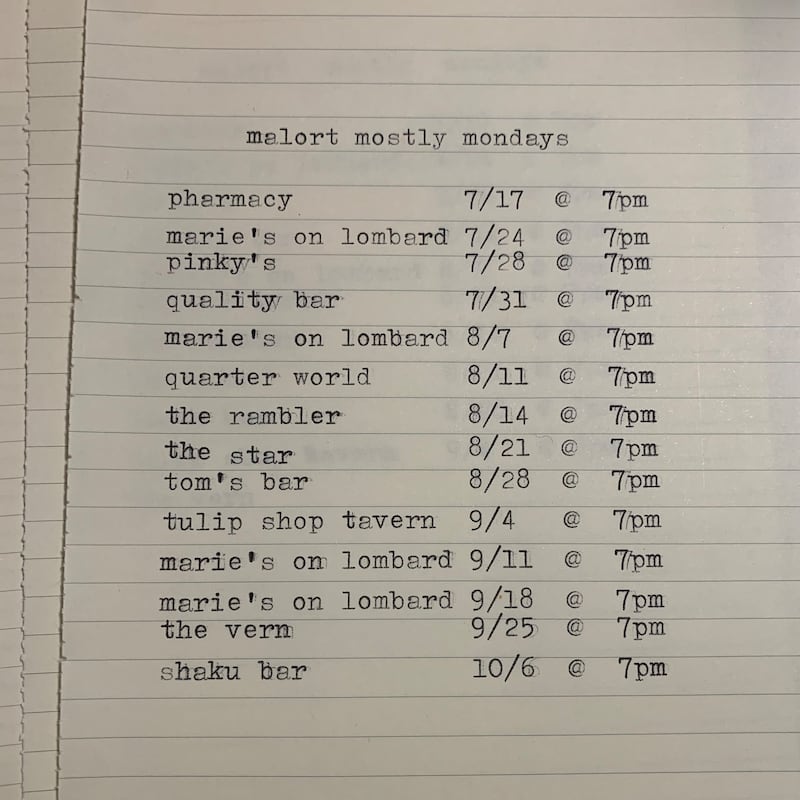 malort mostly mondays
pharmacy 7/17 @ 7pm
marie's on lombard 7/24 @ 7pm
pinky's 7/28 @ 7pm
quality bar 7/31 @ 7pm
marie's on lombard 8/7 @ 7pm
quarter world 8/11 @ 7pm
the rambler 8/14 @ 7pm
the star 8/21 @ 7pm
tom's bar 8/28 @ 7pm
tulip shop tavern 9/4 @ 7pm
marie's on lombard 9/11 @ 7pm
marie's on lombard 9/18 @ 7pm
the vern 9/25 @ 7pm
shaku bar 10/6 @ 7pm